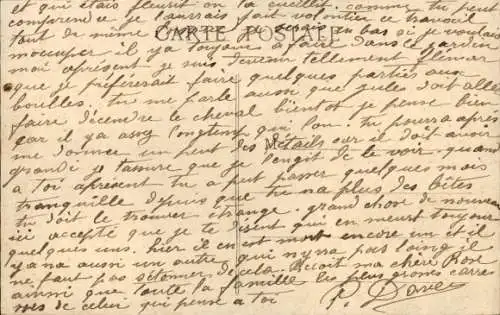 et qui était fleurit on la cueillit. comme tu peut
comprendre je l'aurais fait volontier ce travail
CARTE POSTALE
tout de même en bas où je voulais
m'occuper il y a toujours à faire dans ce jardin
moi aprésent je suis devenu tellement
que je préférerait faire quelques parties aux
boulles. tu me parle aussi que Jules doit aller
faire décendre le cheval bientot je pense bien
car il y a assez longtemps qui l'on. tu pourra après
me donner un peut des détails sur il doit avoir
grandi je t'assure que je lengit de le voir, quand
a toi aprésent tu a put passer quelques mois
tranquille depuis que tu n'a plus des bêtes
tu doit le trouver étrange. grand chose de nouveau
ici accepté que je te disent qui en meurt toujours
quelques uns. hier il en est mort encore un et il
y a na aussi un autre qui n'y ra pas loing il
ne faut pas s'étonner de cela. Reçoit ma chère Rose
ainsi que toute la famille les plus grosses cares
ses de celui qui pense a toi
P.